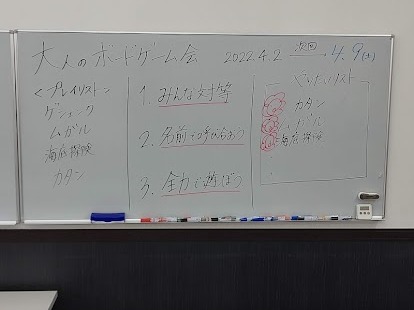 大人のボードゲーム会 2022.4.2 次回 4.9(土)
<プレイリスト>
ゲシェンク
ムガル
海底探検
カタン
1. みんな対等
2. 名前で呼び合おう
3. 全力で遊ぼう
カタン
ムガル
海底探検